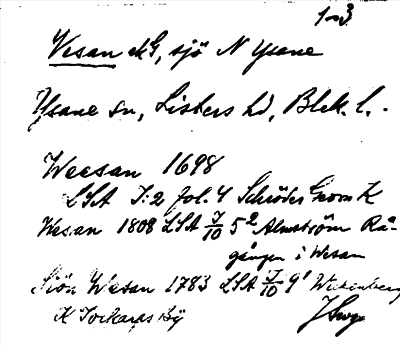 1-3
Vesan ekG, sjö N Ysane
Ysane sn, Listers hd, Blek. l.
Weesan 1698
LSA I:2 fol. 4 Schröder Geom K
Wesan 1808 LSA 7/10 5² Almström Rå-
gången i Wesan
Siön Wesan 1783 LSA 7/10 9¹ Wickenberg
K Torkarps By